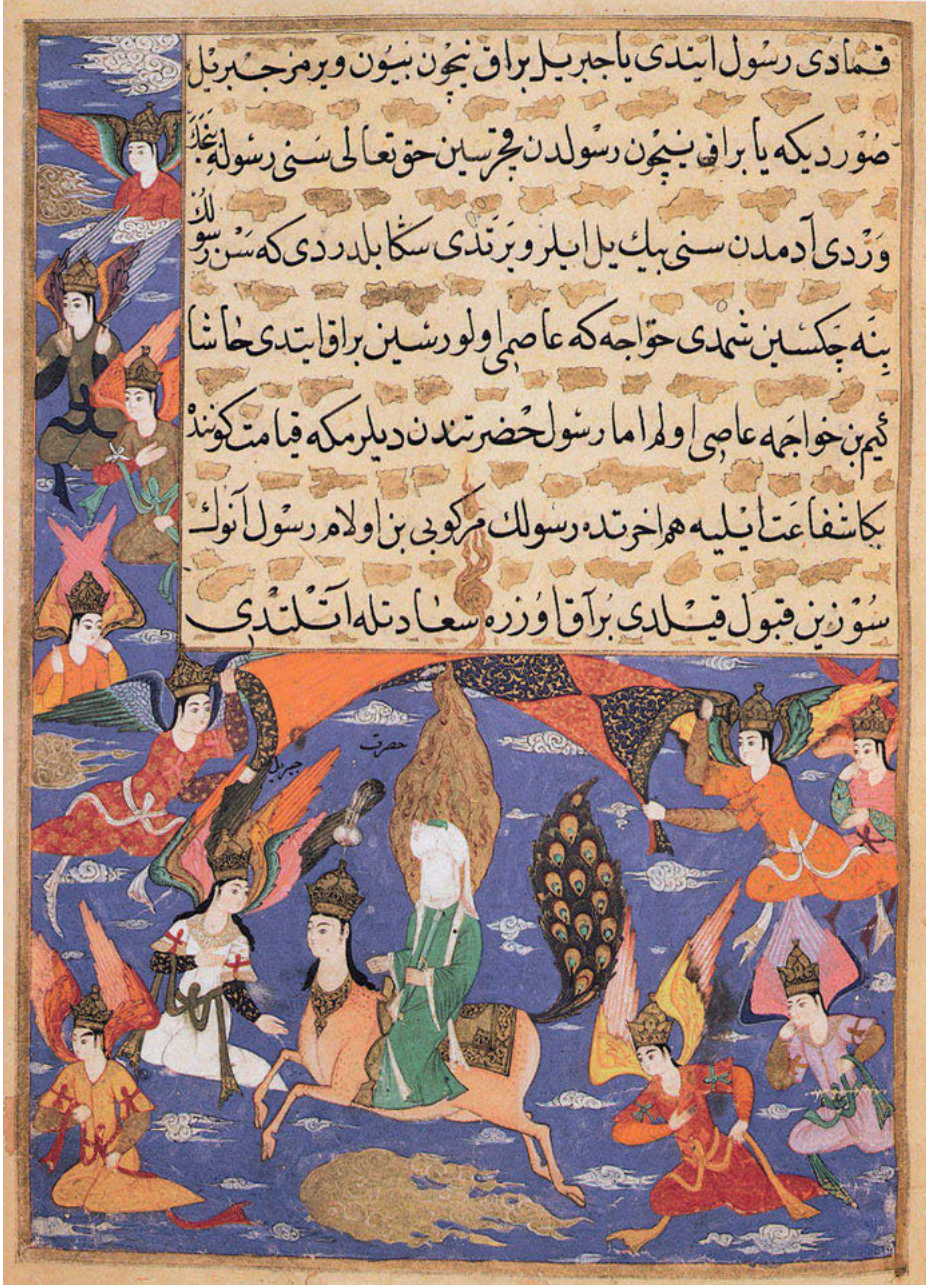 قمادی رسول ایتدی یا جبریل براق نیچون بنیون ویرمز جبریل
صوردیکه یا براق نیچون رسولدن قچرسین حق تعالی سنی رسوله
وردی آدمدن سنی بیك یل ایلرو یرتدی سکا بلدردی که سن رسولك
بینه جکسین شمدی خواجه که عاصمی اولورسین براق ایتدی حاشا
کیم بن خواجمه عاصی اولم اما رسول حضرتندن دیلرمکه قیامت کوننده
بکا شفاعت ایلیه هم اخرتده رسولك مرکوبی بن اولام رسول آنوك
سوزین قبول قیلدی براق اوزره سعادتله اتلتدی
حضرت
جبریل